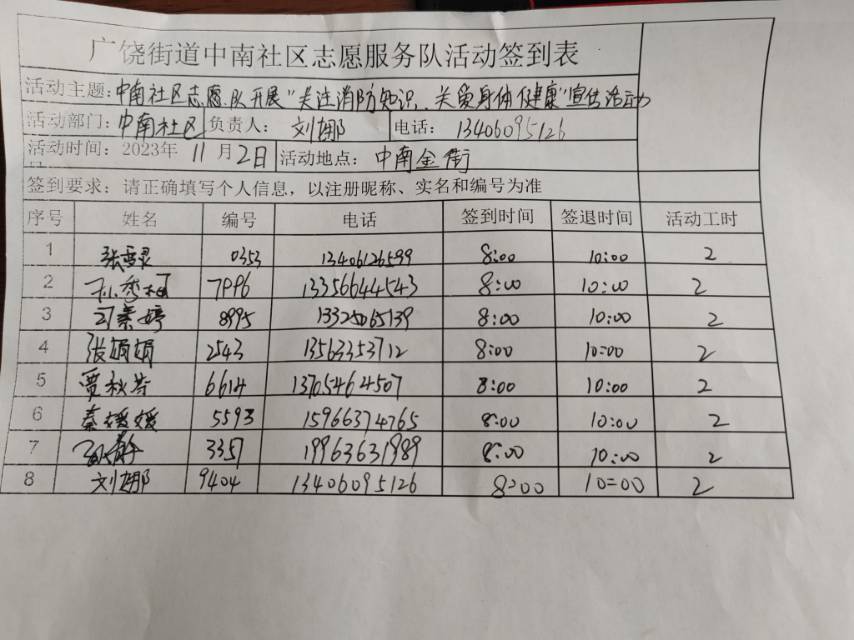 广饶街道中南社区志愿服务队活动签到表
活动主题：中南社区志愿队开展"关注消防知识、关爱身体健康"宣传活动
活动部门：中南社区 负责人： 刘娜 电话： 13406095126
活动时间：2023年 11 月 2日 活动地点： 中南金街
签到要求：请正确填写个人信息，以注册昵称、实名和编号为准
序号 姓名 编号 电话 签到时间 签退时间 活动工时
1 0353 13406126599 8:00 10:00 2
2 孙秀梅 7996 13356644543 8:00 10:00 2
3 司素婷 8995 13325065139 8:00 10:00 2
4 张娟娟 2543 13563353712 8:00 10:00 2
5 贾秋芬 6614 13705464507 8:00 10:00 2
6 秦媛媛 5593 15966374765 8:00 10:00 2
7 3357 19963631989 8:00 10:00 2
8 刘娜 9404 13406095126 8:00 10:00 2